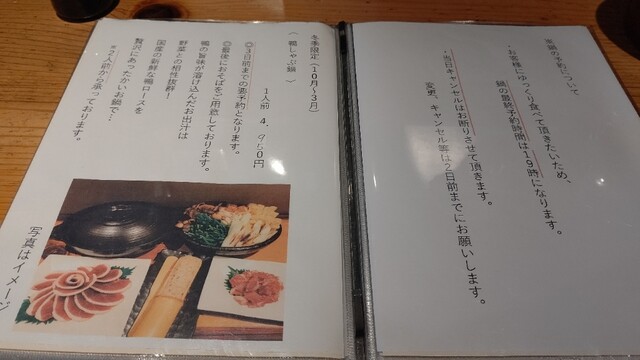 冬鍋の予約について
・お客様にゆっくり食べて頂きたいため、
鍋の最終予約時間は19時になります。
・当日キャンセルはお断りさせて頂きます。
変更、キャンセル等は2日前までにお願いします。
冬季限定(10月〜3月)
〈鴨しゃぶ鍋〉
1人前 4,950円
◎3日前までの要予約となります。
◎最後におそばをご用意しております。
鴨の旨味が溶け込んだお出汁は
野菜との相性抜群!
国産の新鮮な鴨ロースを
贅沢にあったかいお鍋で…
※2人前から承っております。
写真はイメージ